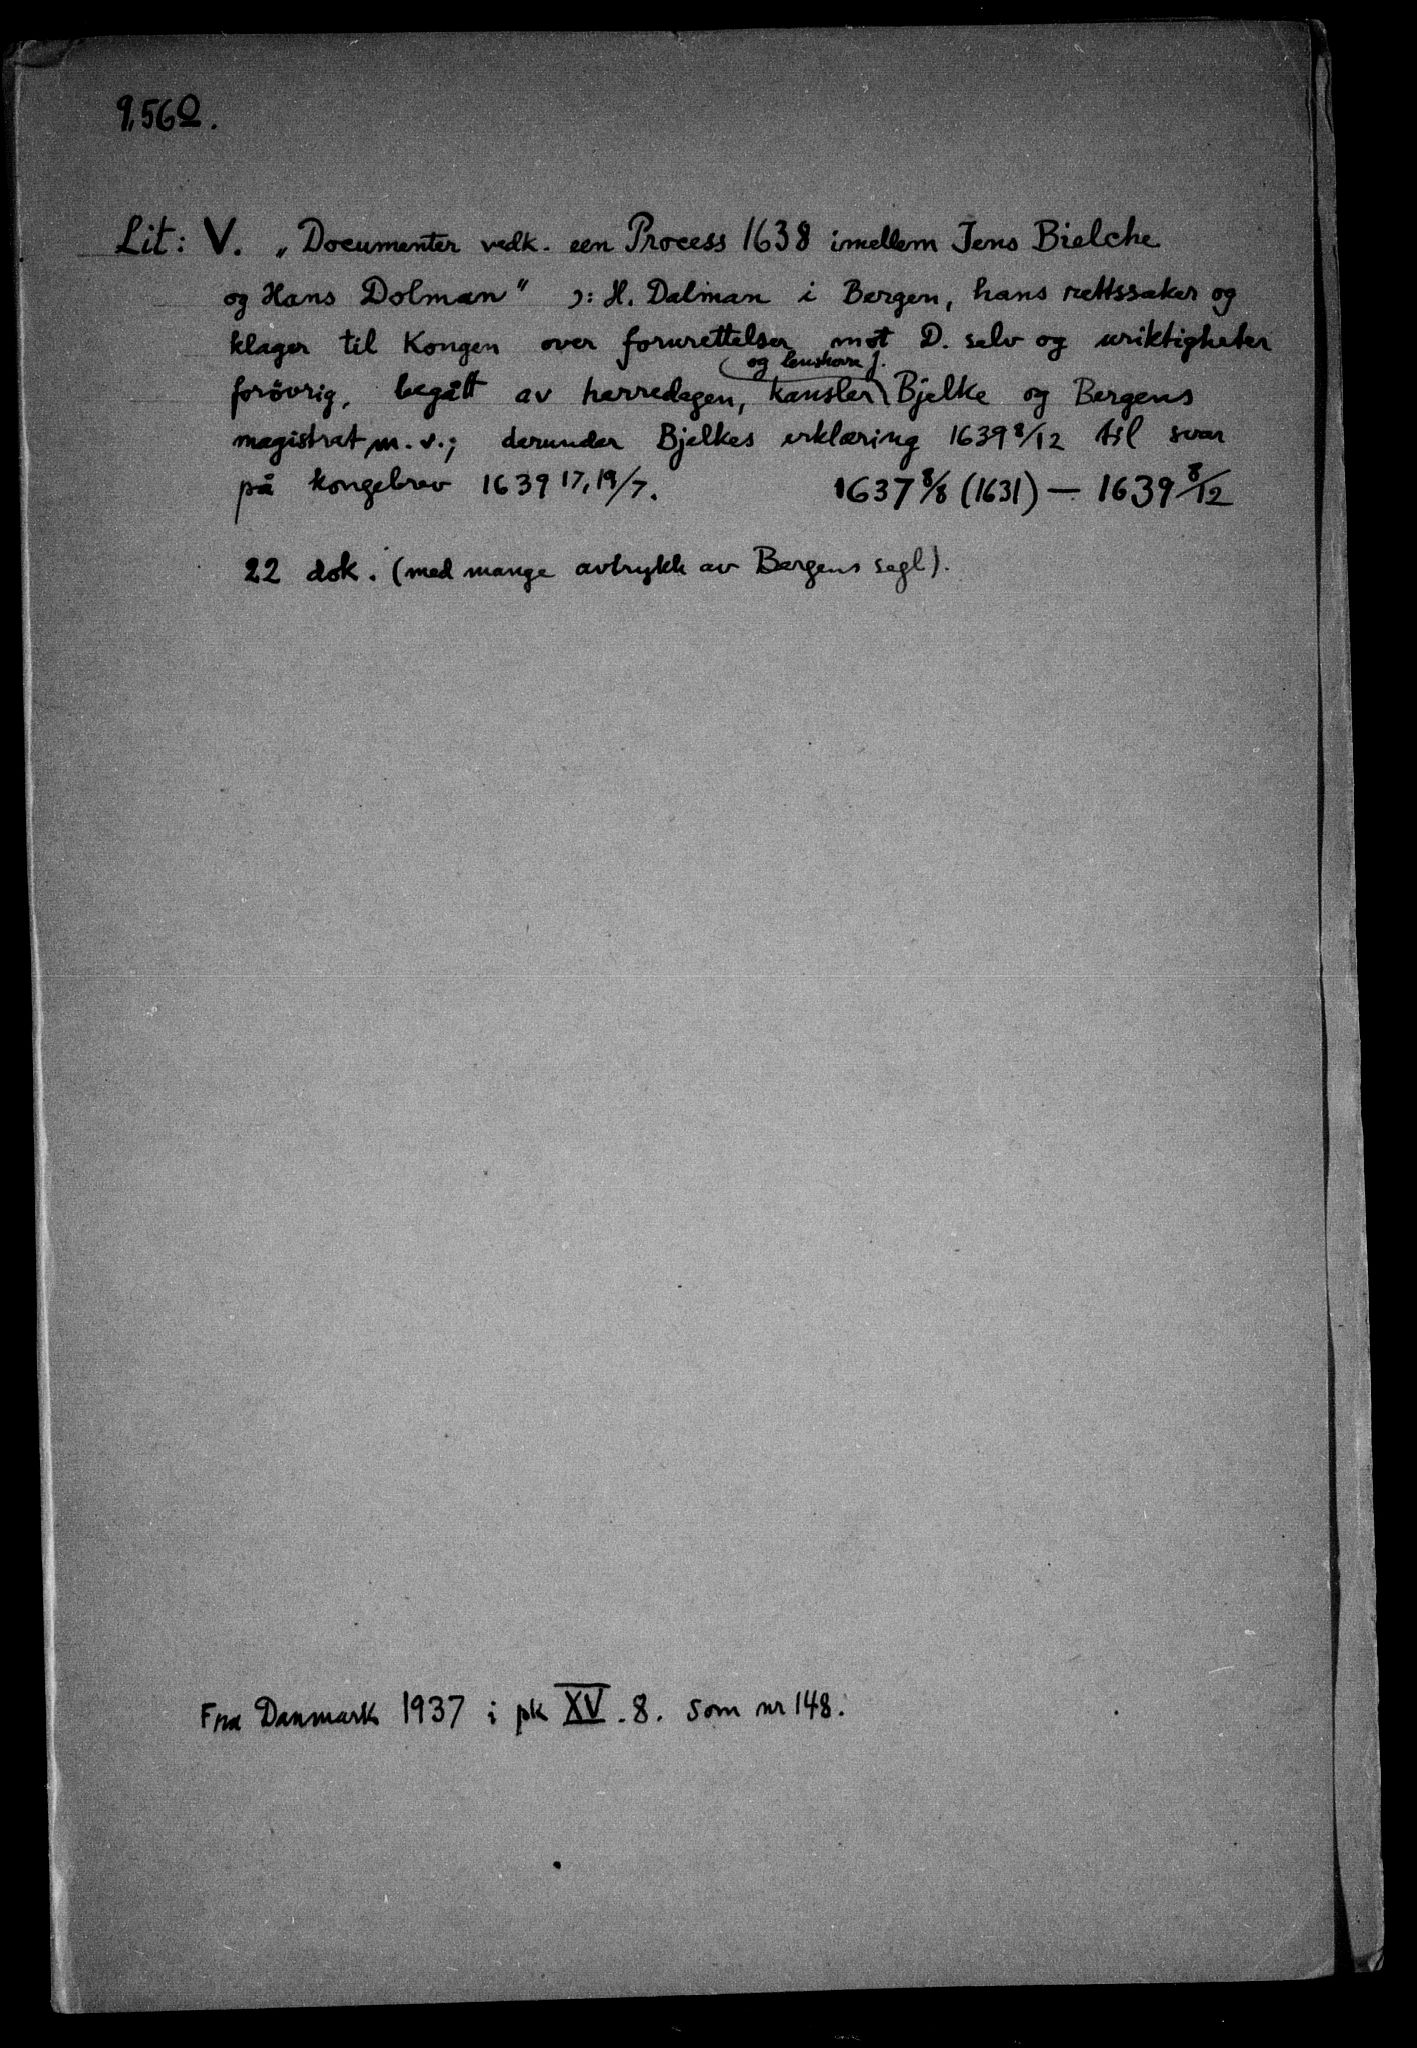 9,56Q.
Lit: V. „Documenter vedk. een Process 1638 imellem Jens Bielche
og Hans Dolman" ɔ: H. Dalman i Bergen, hans rettssaker og
klager til Kongen over forurettelser mot D. selv og uriktigheter
og lensherre J.
forövrig, begått av herredagen, kansler Bjelke og Bergens
magistrat m. v.; derunder Bjelkes erklæring 1639 8/12 til svar
på kongebrev 1639 17, 19/7. 1637 8/8 (1631) — 1639 8/12
22 dok. (med mange avtrykk av Bergens segl).
Fra Danmark 1937 i pk XV. 8. som nr 148.